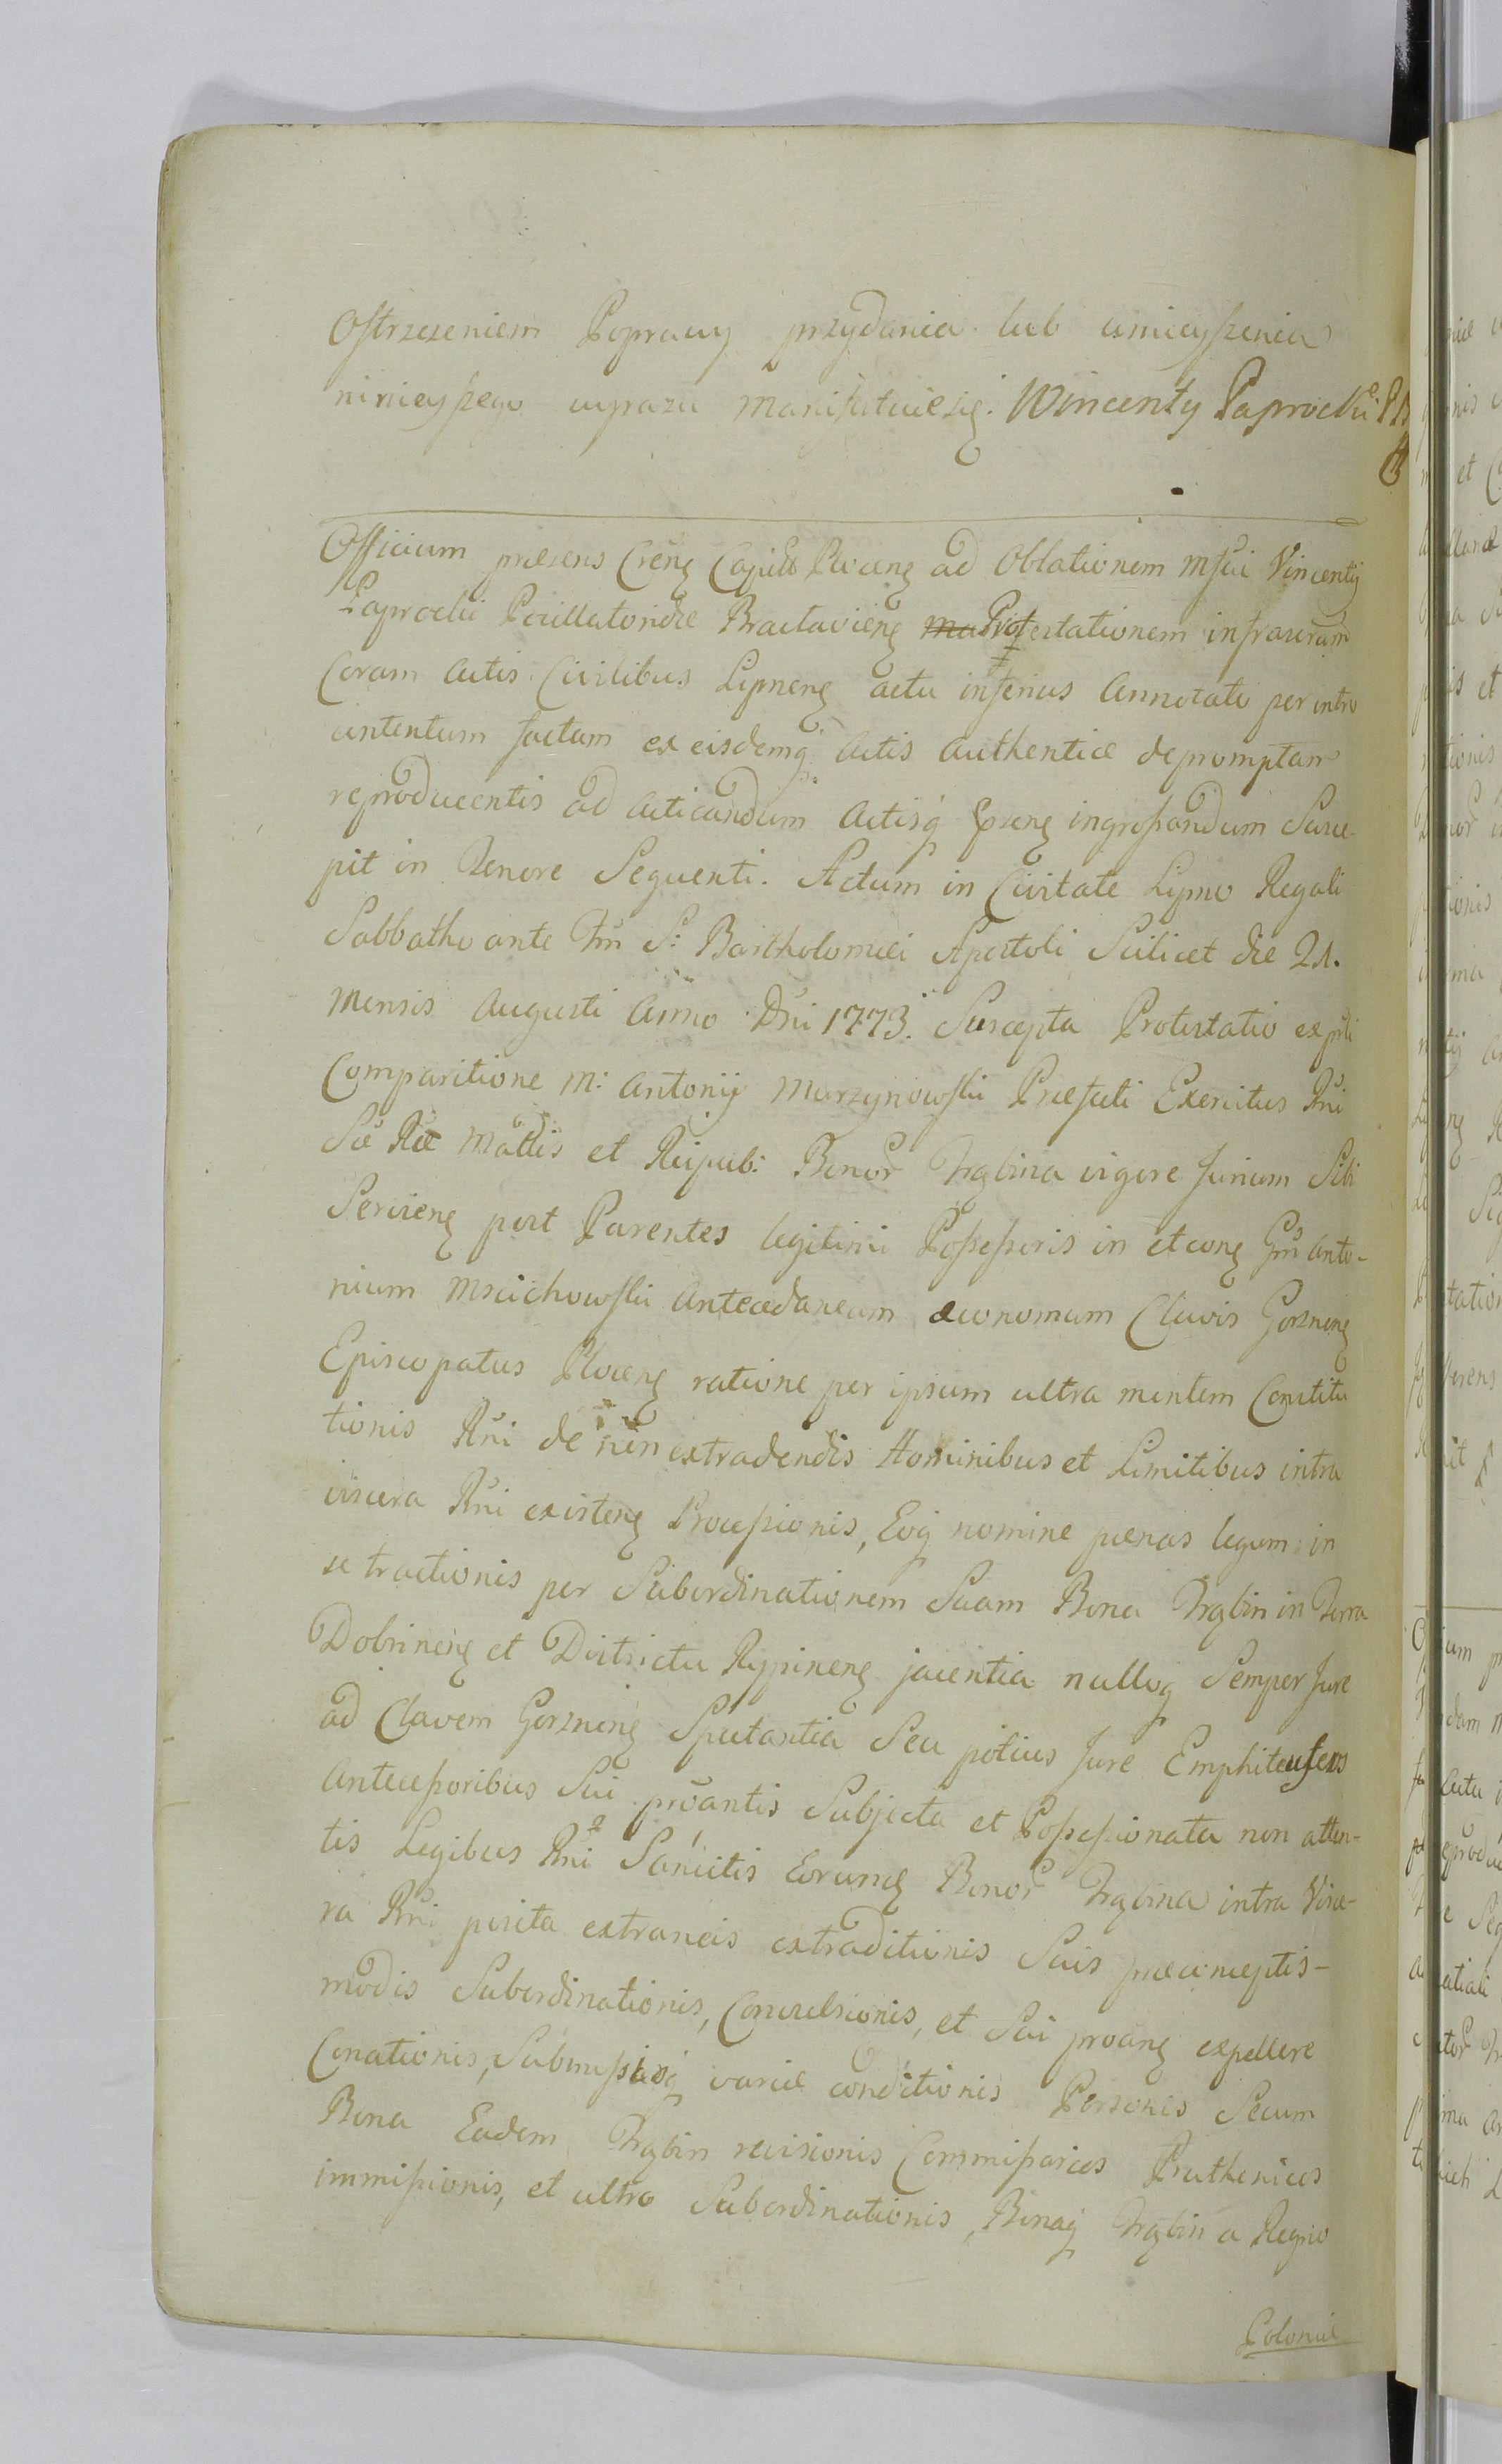 Ostrzezeniem Poprawy przydania lub umieyszenia
ninieyszego wyrazu Manifestuie się. Wincenty Paprocki
Officium præsens Cren͠ Capitt Plocen͠ ad Oblationem Msci Vincentij
Paprocki Pocillatoridæ Braclavien͠ Protestationem infrascram
Coram Actis Civilibus Lipnen͠ actu inferius Annotato per intro
contentum factam ex eisdemq̃ Actis Authentice depromptam
reproducentis ad acticandum Actisq̃ ingrossandum Susce-
pit in Tenore Sequenti. Actum in Civitate Lipno Regali
Sabbatho ante Fm̃ S: Bartholomæi Apostoli Scilicet die 21.
Mensis Augusti Anno Dn̄i 1773. Suscepta Protestatio ex prsli
Comparitione M: Antonij Murzynowski Præfecti Exercitus Rn̄i
Sæ Ræ Mattis et Reipub: Bonor̃ Trąbina vigore Jurium Sibi
Servien͠ post Parentes legitimi Possessoris in et con͠ Gm̃ Anto-
nium Mscichowski Antecedaneum œconomum Clavis Gorznen͠
Episcopatus Plocen͠ ratione per ipsum ultra mentem Constitu
tionis Rn̄i de non extradendis Hominibus et Limitibus intra
viscera Rn̄i existen͠ Processionis, Eoq̃ nomine pœnas legum in
se tractionis per Subordinationem Suam Bona Trąbin in Terra
Dobrinen͠ et Districtu Rypinen͠ jacentia nulloq̃ Semper Jure
ad Clavem Gorznen͠ Spectantia Seu potius Jure
Antecessoribus Sui proantis Subjecta et Possessionata non atten-
tis Legibus Rn̄i Sancitis Eorumq̃ Bonor̃ Trąbina intra Visce-
ra Rn̄i posita extraneis extraditionis Suis præconceptis-
modis Subordinationis, Convulsionis, et Sui proan͠ expellere
Conationis, Submissisq̃ variæ conditionis Personis Secum
Bona Eadem Trąbin revisionis Commissarios Pruthenicos
immissionis, et ultro Subordinationis, Bonaq̃ Trąbin a Regno
Poloniæ